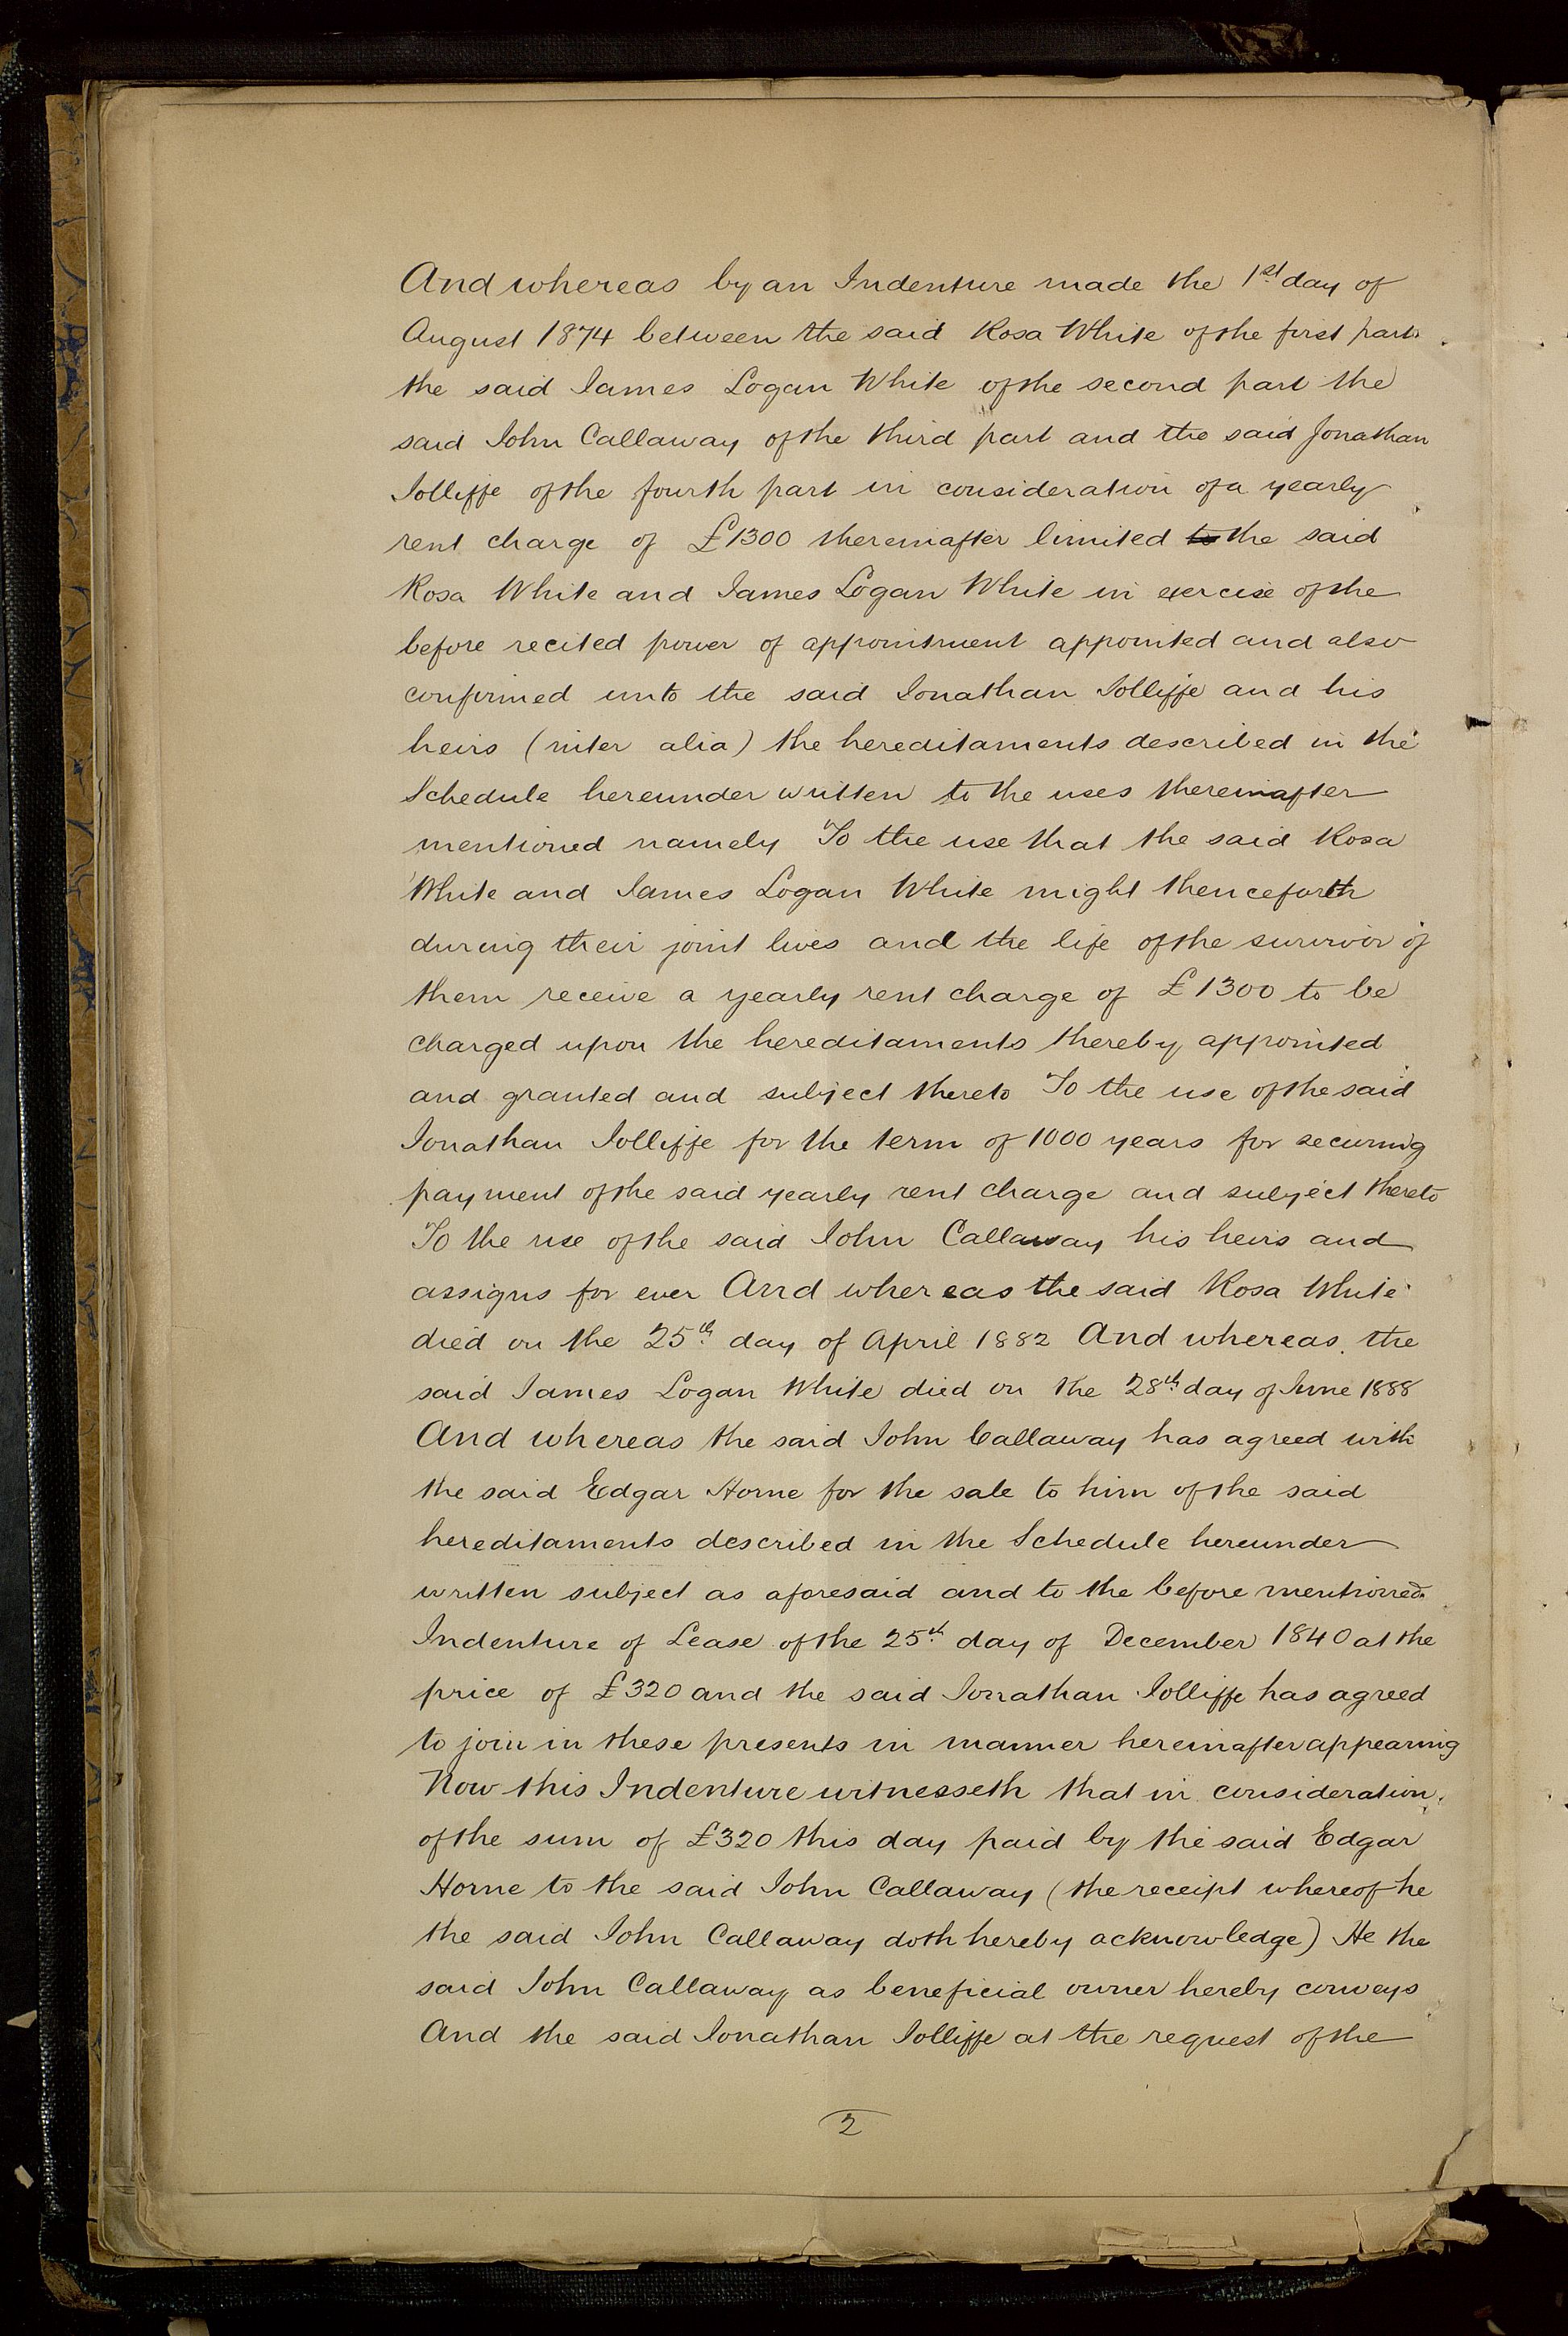 And whereas by an Indenture made the 1st day of
August 1874 between the said Rosa White of the first part
the said James Logan White of the second part the
said John Callaway of the third part and the said Jonathan
Jolliffe of the fourth part in consideration of a yearly
rent charge of £1300 thereinafter limited to the said
Rosa White and James Logan White in exercise of the
before recited power of appointment appointed and also
confirmed unto the said Jonathan Jolliffe and his
heirs (inter alia) the hereditaments described in the
Schedule hereunder written to the uses thereinafter
mentioned namely To the use that the said Rosa
White and James Logan White might thenceforth
during their joint lives and the life of the survivor of
them receive a yearly rent charge of £1300 to be
charged upon the hereditaments thereby appointed
and granted and subject thereto To the use of the said
Jonathan Jolliffe for the term of 1000 years for securing
payment of the said yearly rent charge and subject thereto
To the use of the said John Callaway his heirs and
assigns for ever And whereas the said Rosa White
died on the 25th day of April 1882 And whereas the
said James Logan White died on the 28th day of June 1888
And whereas the said John Callaway has agreed with
the said Edgar Horne for the sale to him of the said
hereditaments described in the Schedule hereunder
written subject as aforesaid and to the before mentioned
Indenture of Lease of the 25th day of December 1840 at the
price of £320 and the said Jonathan Jolliffe has agreed
to join in these presents in manner hereinafter appearing
Now this Indenture witnesseth that in consideration
of the sum of £320 this day paid by the said Edgar
Horne to the said John Callaway (the receipt whereof he
the said John Callaway doth hereby acknowledge) He the
said John Callaway as beneficial owner hereby conveys
And the said Jonathan Jolliffe at the request of the
2